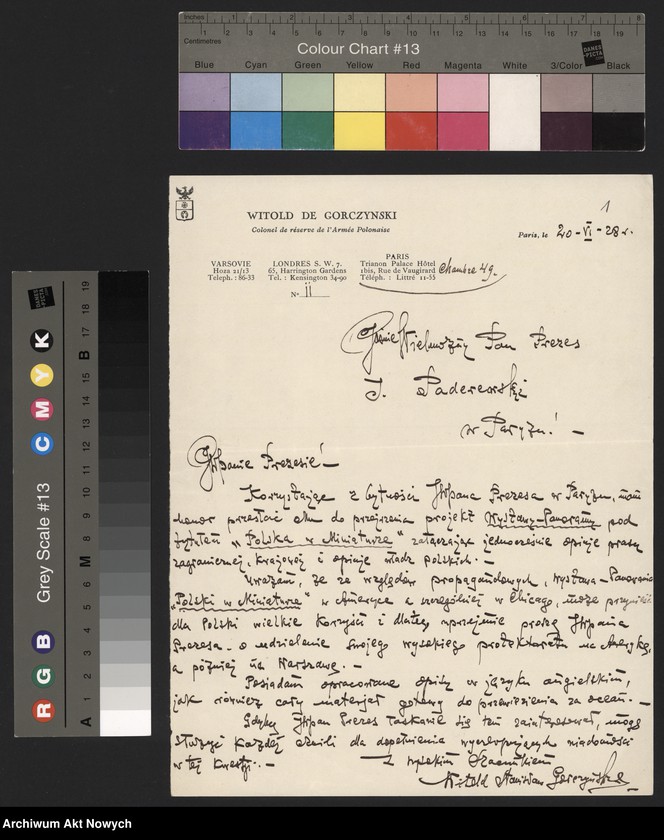 Inches 1 2 3 4 5 6 7 8
Centimetres 1 2 3 4 5 6 7 8 9 10 11 12 13 14 15 16 17 18 19
Colour Chart #13
DANES PICTA
Blue Cyan Green Yellow Red Magenta White 3/Color Black
Grey Scale #13
DANES PICTA
R G B C M Y K
A 1 2 3 4 5 6 M 8 9 10 11 12 13 14 15 B 17 18 19
1
WITOLD DE GORCZYNSKI
Colonel de réserve de l'Armée Polonaise
Paris, le 20-VI-28 r.
VARSOVIE
Hoza 21/13
Teleph. : 86-33
LONDRES S. W. 7.
65, Harrington Gardens
Tel. : Kensington 34-90
PARIS
Trianon Palace Hôtel
1bis, Rue de Vaugirard
Téléph. : Littré 11-55
Chambre 49.
No 11
Jaśnie Wielmożny Pan Prezes
J. Paderewski
w Paryżu! —
JWPanie Prezesie! —
Korzystając z bytności JWPana Prezesa w Paryżu, mam
honor przesłać Mu do przejrzenia projekt Wystawy-Panoramy pod
tytułem „Polska w Miniaturze" załączając jednocześnie opinje prasy
zagranicznej, krajowej i opinje władz polskich. —
Uważam, że ze względów propagandowych, Wystawa-Panorama
„Polski w Miniaturze" w Ameryce a szczególniej w Chicago, może przynieść
dla Polski wielkie korzyści i dlatego uprzejmie proszę JWPana
Prezesa o udzielenie swojego wysokiego protektoratu na Amerykę,
a później na Warszawę. —
Posiadam opracowane opisy w języku angielskim,
jak również cały materjał gotowy do przewiezienia za ocean. —
Gdyby JWPan Prezes łaskawie się tem zainteresował, mogę
służyć każdej chwili dla dopełnienia wyczerpujących wiadomości
w tej kwestji. —
Z wysokim szacunkiem
Witold Stanisław Gorczyński
Archiwum Akt Nowych